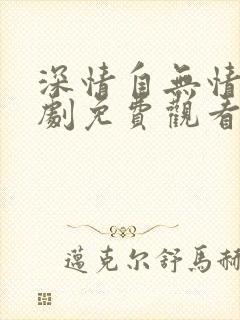 深情自無情
劇免費觀看
邁克尔舒馬赫